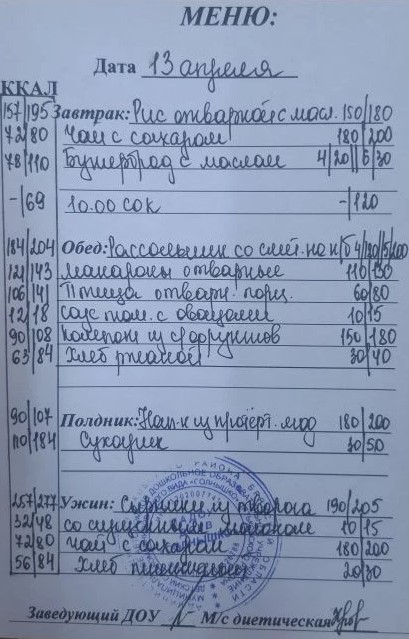 МЕНЮ:
Дата 13 апреля
ККАЛ
157/195 Завтрак: Рис отварной с масл. 150/180
72/80 Чай с сахаром 180/200
78/110 Бутерброд с маслом 4/20//6/30
-/69 10.00 сок -/120
184/204 Обед: Рассольник со смет. на к/б
121/143 макароны отварные 110/130
106/141 Птица отварн. порц. 60/80
12/18 соус том. с овощами 10/15
90/108 компот из с/фруктов 150/180
63/84 Хлеб ржаной 30/40
90/107 Полдник: Нап-к из протёрт. 180/200
110/184 Сухарик 30/50
257/277 Ужин: Сырники из творога 190/205
32/48 со сгущенным молоком 10/15
72/80 Чай с сахаром 180/200
56/84 Хлеб пшеничный 20/30
Заведующий ДОУ М/с диетическая